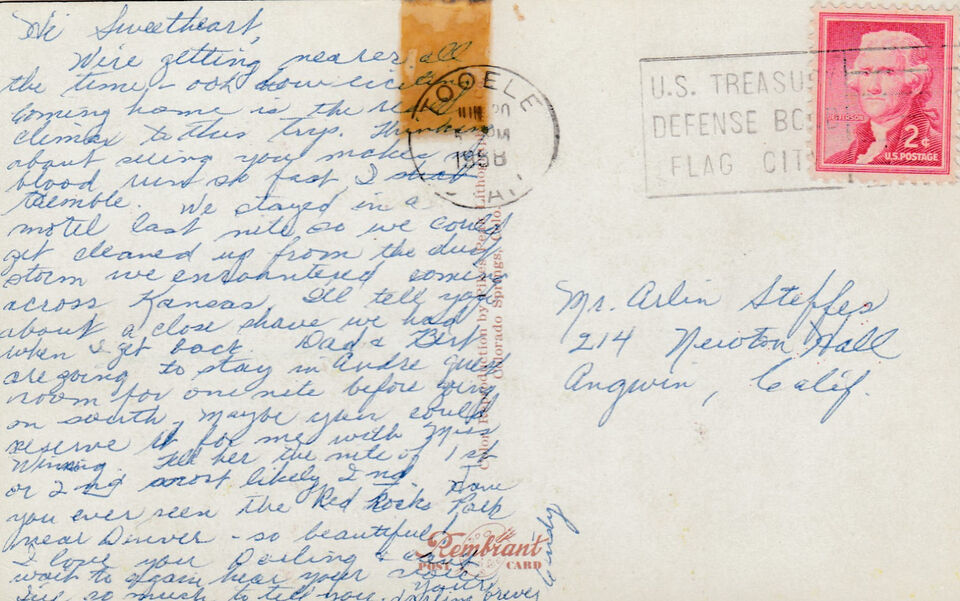 Hi Sweetheart,
We're getting nearer all
the time - ooh how
coming home is the real
climax to this trip. Thinking
about seeing you makes my
blood run so fast I
tremble. We stayed in a
motel last nite so we could
get cleaned up from the dust
storm we encountered coming
across Kansas. I'll tell you
about a close shave we had
when I get back. Dad & Bert
are going to stay in Andre
room for one nite before going
on south, maybe you could
reserve it for me with Miss
Winning. Tell her the nite of 1st
or 2nd most likely 2nd. Have
you ever seen the Red Rocks Park
near Denver - so beautiful!
I love you Darling &
wait to again hear your voice
I've so much to tell you. Your
darling forever
Wendy
TOOELE
JUN 30
PM
1958
UTAH
U.S. TREASURY
DEFENSE BONDS
FLAG CITY
JEFFERSON
2¢
U.S. POSTAGE
Color Reproduction by Pikes Peak Lithographing
Colorado Springs, Colo.
Mr. Arlin Steffes
214 Newton Hall
Angwin, Calif.
Rembrant
POST CARD